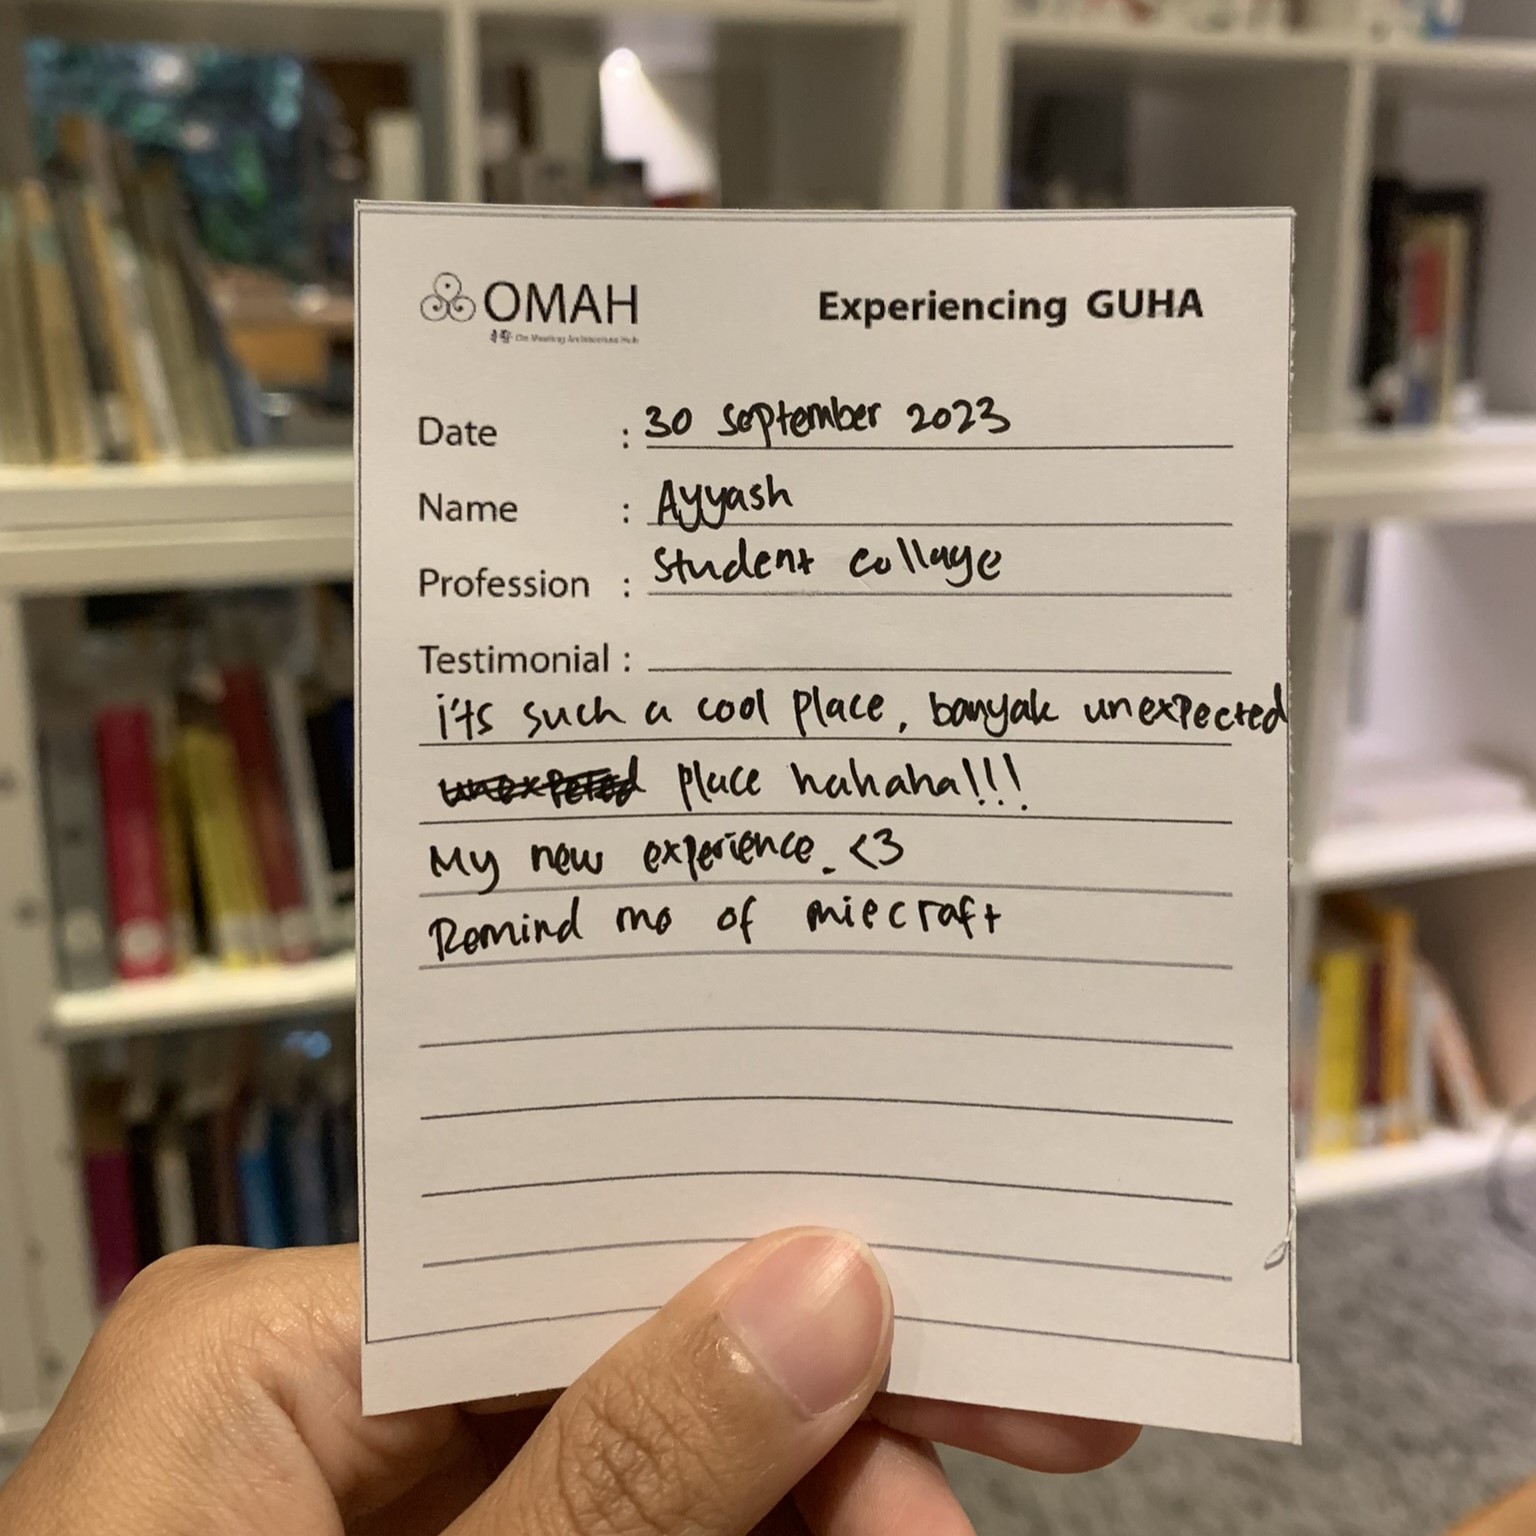 OMAH
Experiencing GUHA
Date : 30 September 2023
Name : Ayyash
Profession : Student collage
Testimonial :
i'ts such a cool place, banyak unexpected
place hahaha!!!
My new experience. <3
Remind me of miecraft